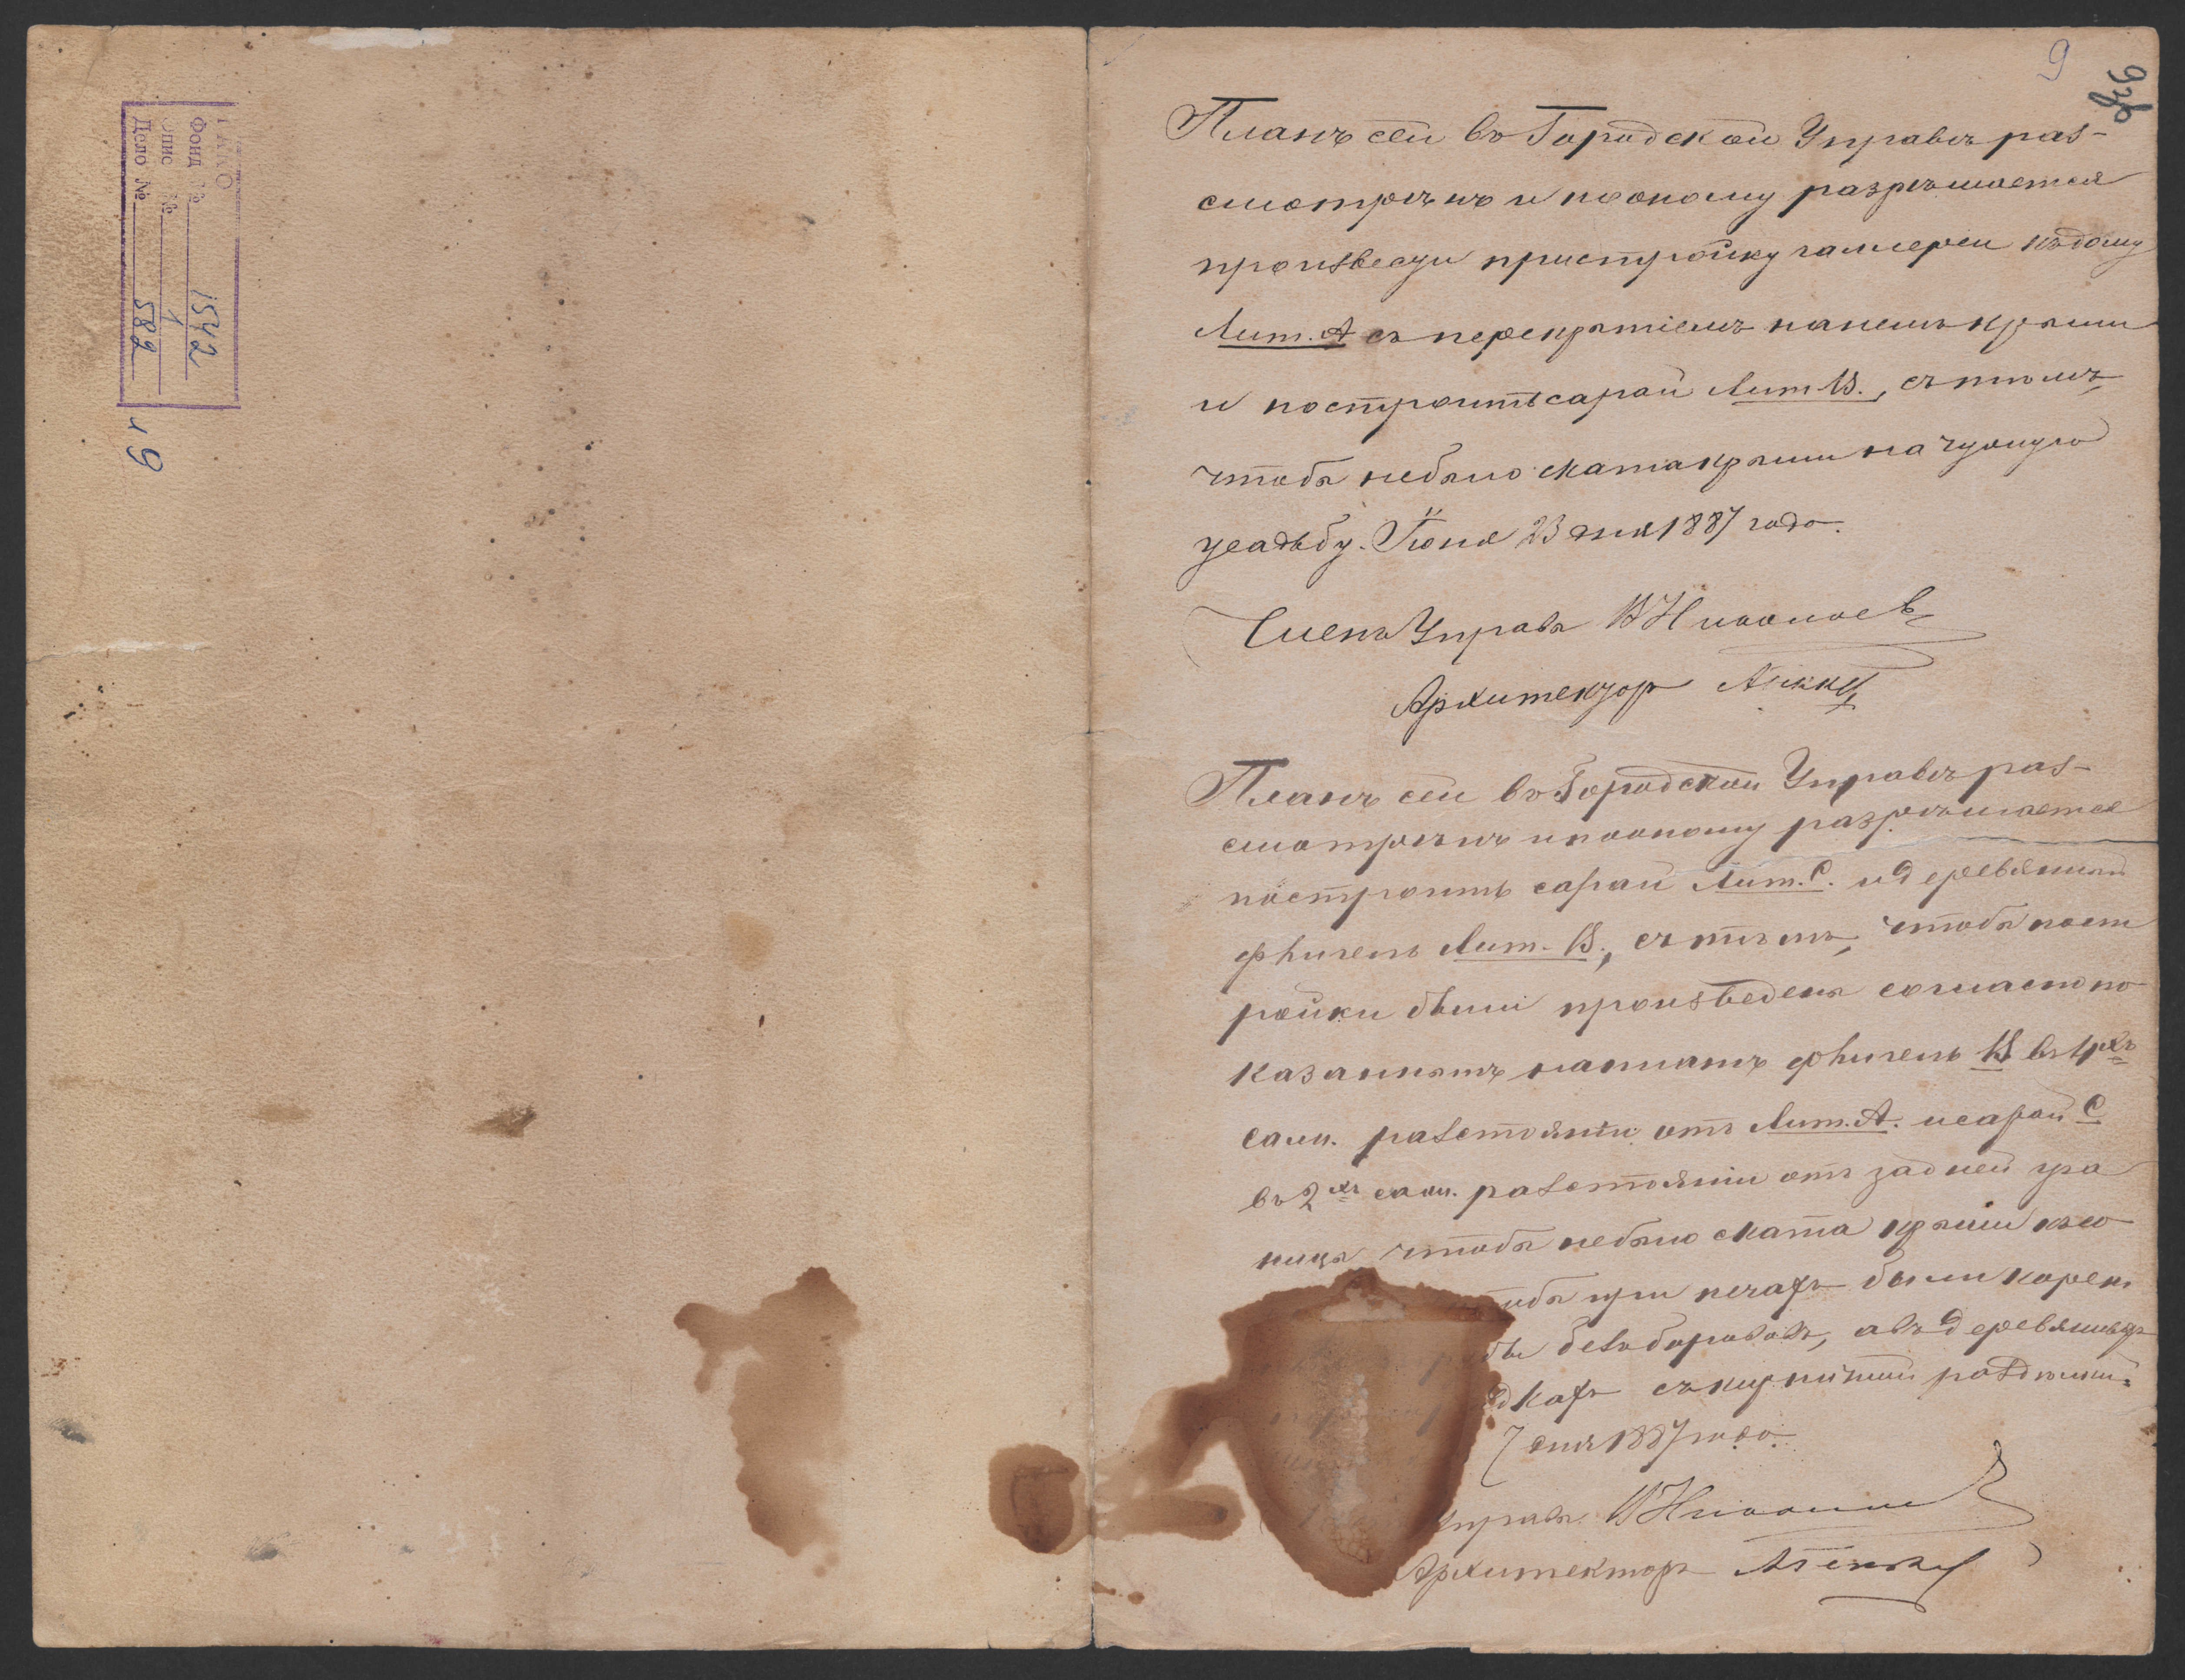 ГАКО
Фонд № 1542
Опис № 1
Дело № 582
л 9
9
Планъ сей въ Городской Управѣ раз-
смотрѣнъ и по оному разрѣшается
произвести пристройку галлереи къ дому
Лит. А съ перекрытіемъ на немъ крыши
и построить сарай Лит В., съ тѣмъ,
чтобы небыло ската крыши на чужую
усадьбу. Іюня 23 дня 1887 года.
Членъ Управы
Архитекторъ
Планъ сей въ Городской Управѣ раз-
смотрѣнъ и по оному разрѣшается
построить сарай Лит. С. и деревянный
флигель Лит. В., съ тѣмъ, чтобы пост
ройки были произведены согласно по-
казаннымъ на планѣ флигель В въ 4хъ
саж. разстояніи отъ Лит. А. и сарай С
въ 2хъ саж. разстояніи от задней гра
ницы чтобы небыло ската крыши къ со
чтобы при печахъ были корен
трубы безъ борововъ, а въ деревянныхъ
съ кирпичной раздѣлкой.
7 дня 1887 года.
Управы
Архитекторъ